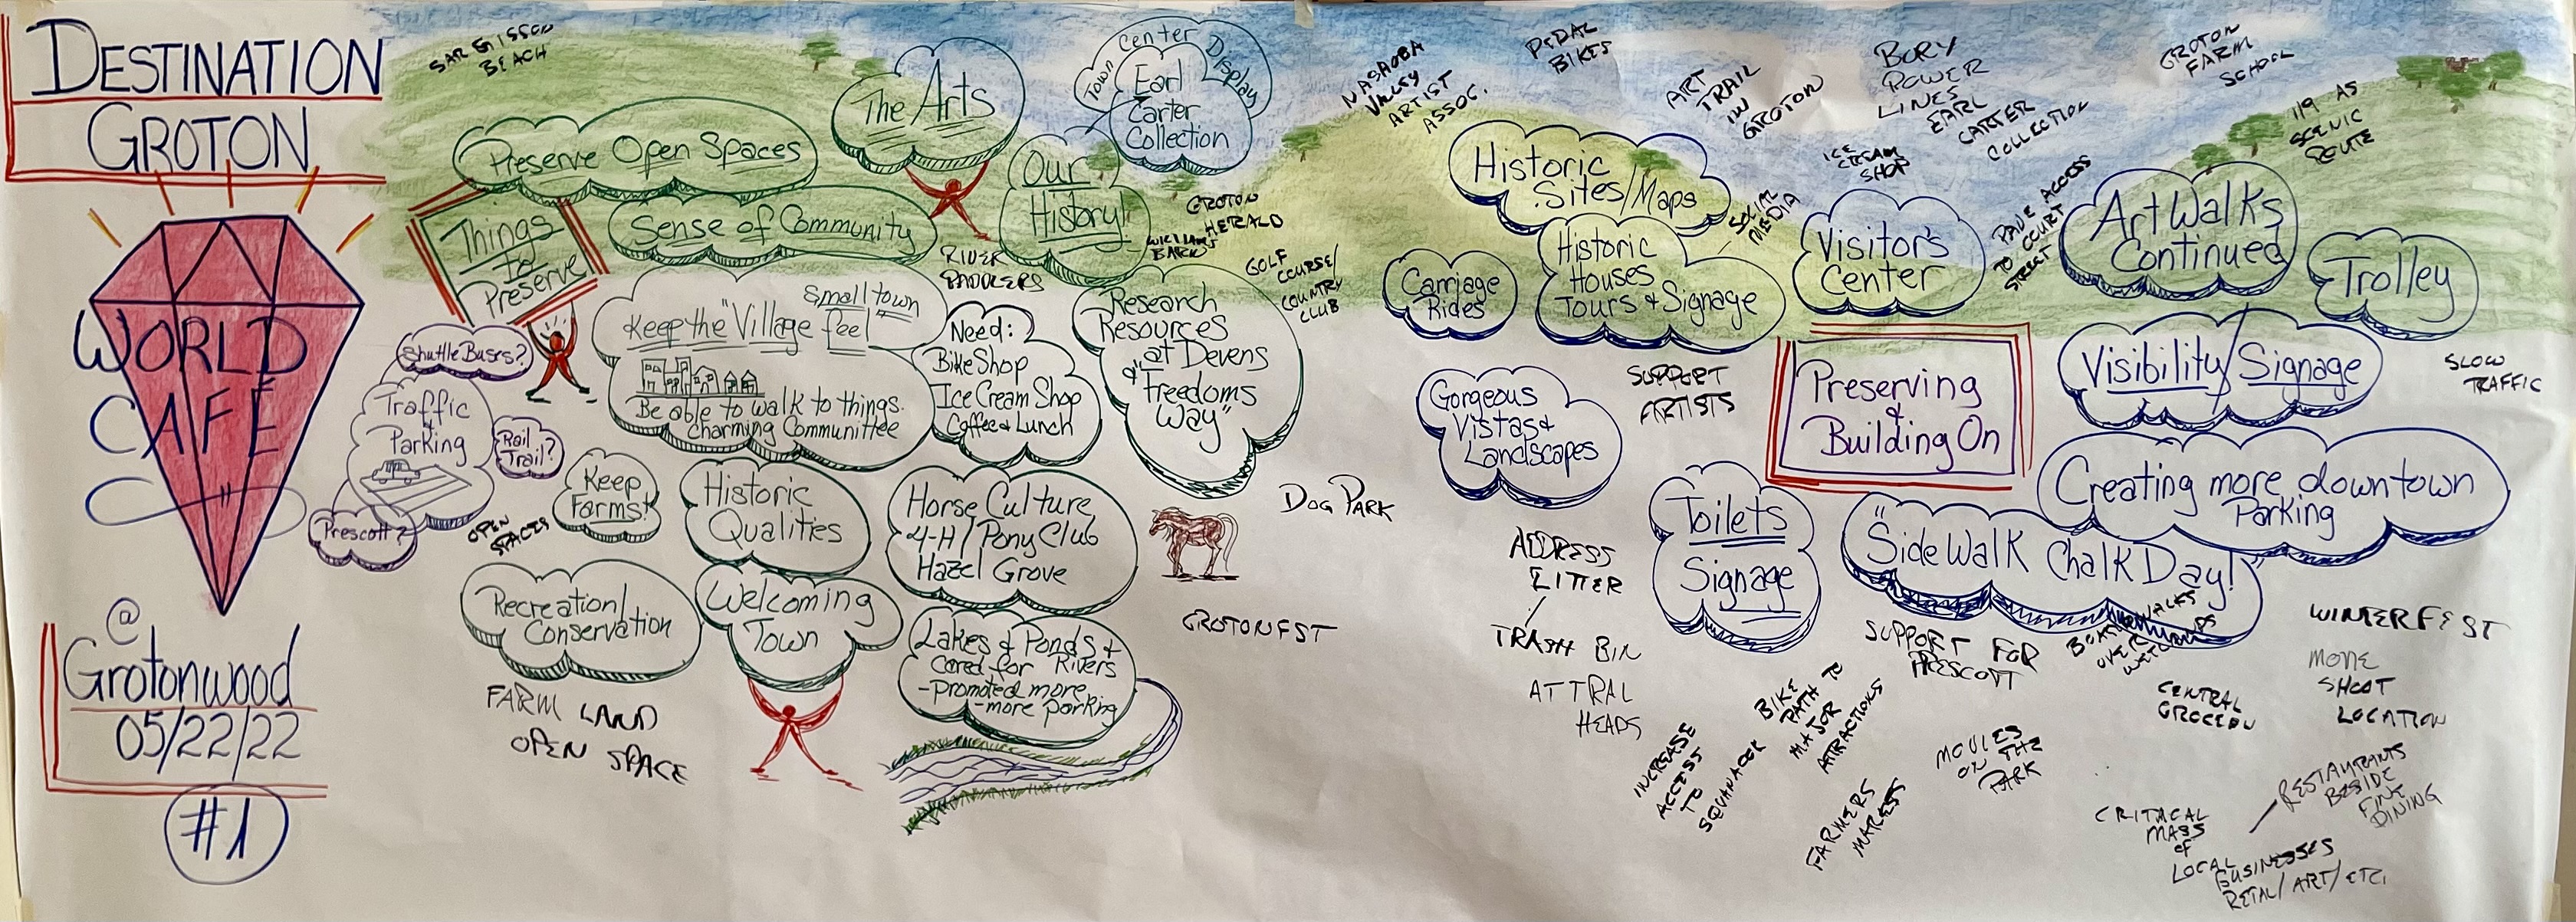 DESTINATION
GROTON
WORLD
CAFÉ
@
Grotonwood
05/22/22
#1
BEACH
Preserve Open Spaces
The Arts
Town Center Display
Earl
Carter
Collection
Things
to
Preserve
Sense of Community
Our
History!
GROTON
HERALD
RIVER
PADDLERS
GOLF
COURSE/
COUNTRY
CLUB
Shuttle Buses?
Traffic
&
Parking
Rail
Trail?
Prescott?
small town
Keep the "Village feel"
Be able to walk to things.
Charming Communittee
Need:
Bike Shop
Ice Cream Shop
Coffee & Lunch
Research
Resources
at Devens
& "Freedoms
Way"
OPEN
SPACES
Keep
Farms!
Historic
Qualities
Horse Culture
4-H/Pony Club
Hazel Grove
DOG PARK
Recreation/
Conservation
Welcoming
Town
Lakes & Ponds &
cared for Rivers
-promoted more
-more parking
GROTONFST
FARM LAND
OPEN SPACE
NASHOBA
VALLEY
ARTIST
ASSOC.
PEDAL
BIKES
ART
TRAIL
IN
GROTON
BURY
POWER
LINES
EARL
CARTER
COLLECTION
GROTON
FARM
SCHOOL
119 AS
SCENIC
ROUTE
ICE
CREAM
SHOP
Historic
Sites/Maps
SOCIAL
MEDIA
Carriage
Rides
Historic
Houses
Tours & Signage
Visitor's
Center
PAVE ACCESS
TO COURT
STREET
Art Walks
Continued
Trolley
Gorgeous
Vistas &
Landscapes
SUPPORT
ARTISTS
Preserving
&
Building On
Visibility/Signage
SLOW
TRAFFIC
Creating more downtown
Parking
Toilets
Signage
"SideWalk Chalk Day!"
ADDRESS
LITTER
TRASH BIN
AT TRAL
HEADS
SUPPORT FOR
PRESCOTT
WINTERFEST
MOVIE
SHOOT
LOCATION
CENTRAL
INCREASE
ACCESS
TO
BIKE
PATH TO
MAJOR
ATTRACTIONS
FARMERS
MOVIES
ON THE
PARK
CRITACAL
MASS
of
LOCAL
BUSINESSES
RETAL/ART/ETC.
RESTAURANTS
BESIDE
FINE
DINING